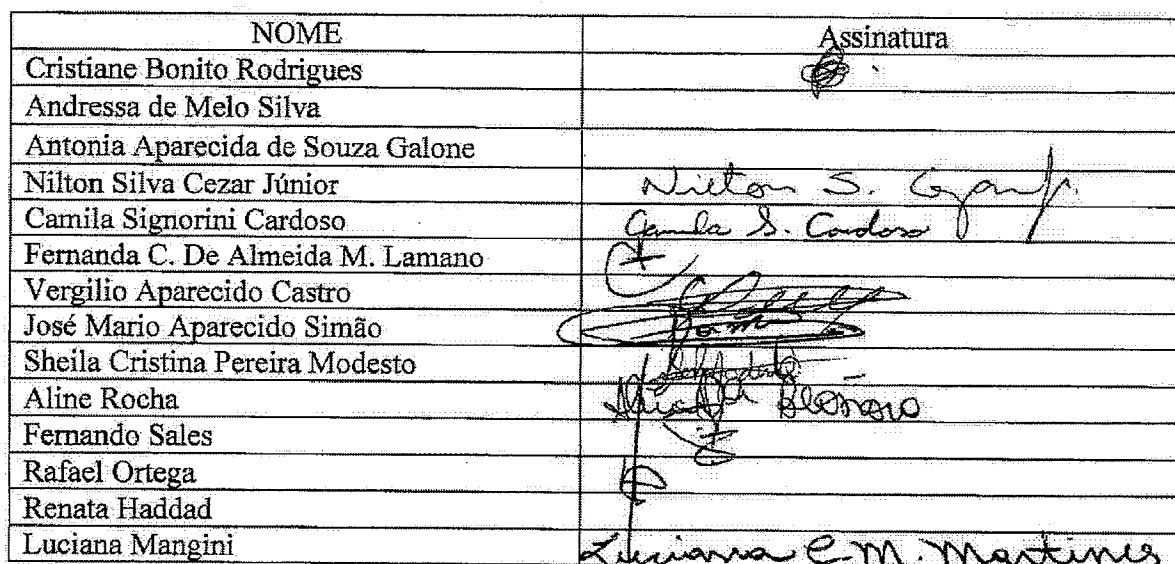 NOME Assinatura
Cristiane Bonito Rodrigues
Andressa de Melo Silva
Antonia Aparecida de Souza Galone
Nilton Silva Cezar Júnior Nilton S.
Camila Signorini Cardoso Camila S. Cardoso
Fernanda C. De Almeida M. Lamano
Vergilio Aparecido Castro
José Mario Aparecido Simão
Sheila Cristina Pereira Modesto
Aline Rocha
Fernando Sales
Rafael Ortega
Renata Haddad
Luciana Mangini Luciana C. M. Martines